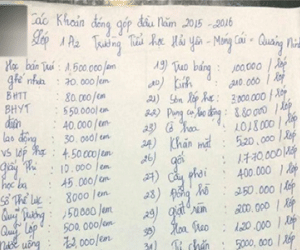 Các Khoản đóng góp đầu Năm 2015 - 2016
Lớp 1A2 Trường Tiểu học Hải Yên - Móng Cái - Quảng Ninh
Học bán Trú 1.500.000/em
ghế nhựa : 70.000/em
BHTT 80.000/em
BHYT 550.000/em
điện 40.000/em
lao động 30.000/em
vs lớp học : 450.000/em
Giấy Thi : 10.000/em
học bạ 45 000/em
Sổ Thể Lực 8000/em
Quỹ Trường 150.000/em
Quỹ Lớp 500.000/em
nước uống 72.000/em
19) Treo bảng : 100.000 / lớp
20) Kính 210.000 / lớp
21) Sơn lớp học : 3.000.000 / lớp
22) lao động : 880.000 / lớp
23) 1.018.000 / lớp
24) Khăn mặt 520.000 / lớp
26) gối 1.770.000 / lớp
27) Cây phơi 400.000 / lớp
28) đồng hồ 250.000 / lớp
29) giát 200.000 / lớp
30) Hoa Treo 120.000 / lớp
31) Tủ chăn 5000.000 / lớp